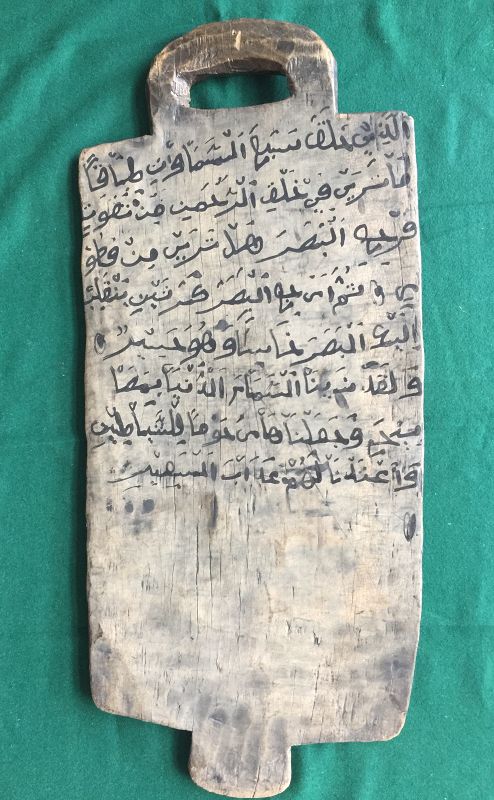 الذي خلق سبع السموات طباقا
ما ترى في خلق الرحمن من تفوت
فارجع البصر هل ترى من فطو
ر ثم ارجع البصر كرتين ينقلب
اليك البصر خاسئا وهو حسير
ولقد زينا السماء الدنيا بمصا
بيح وجعلناها رجوما للشياطين
وأعتدنا لهم عذاب السعير